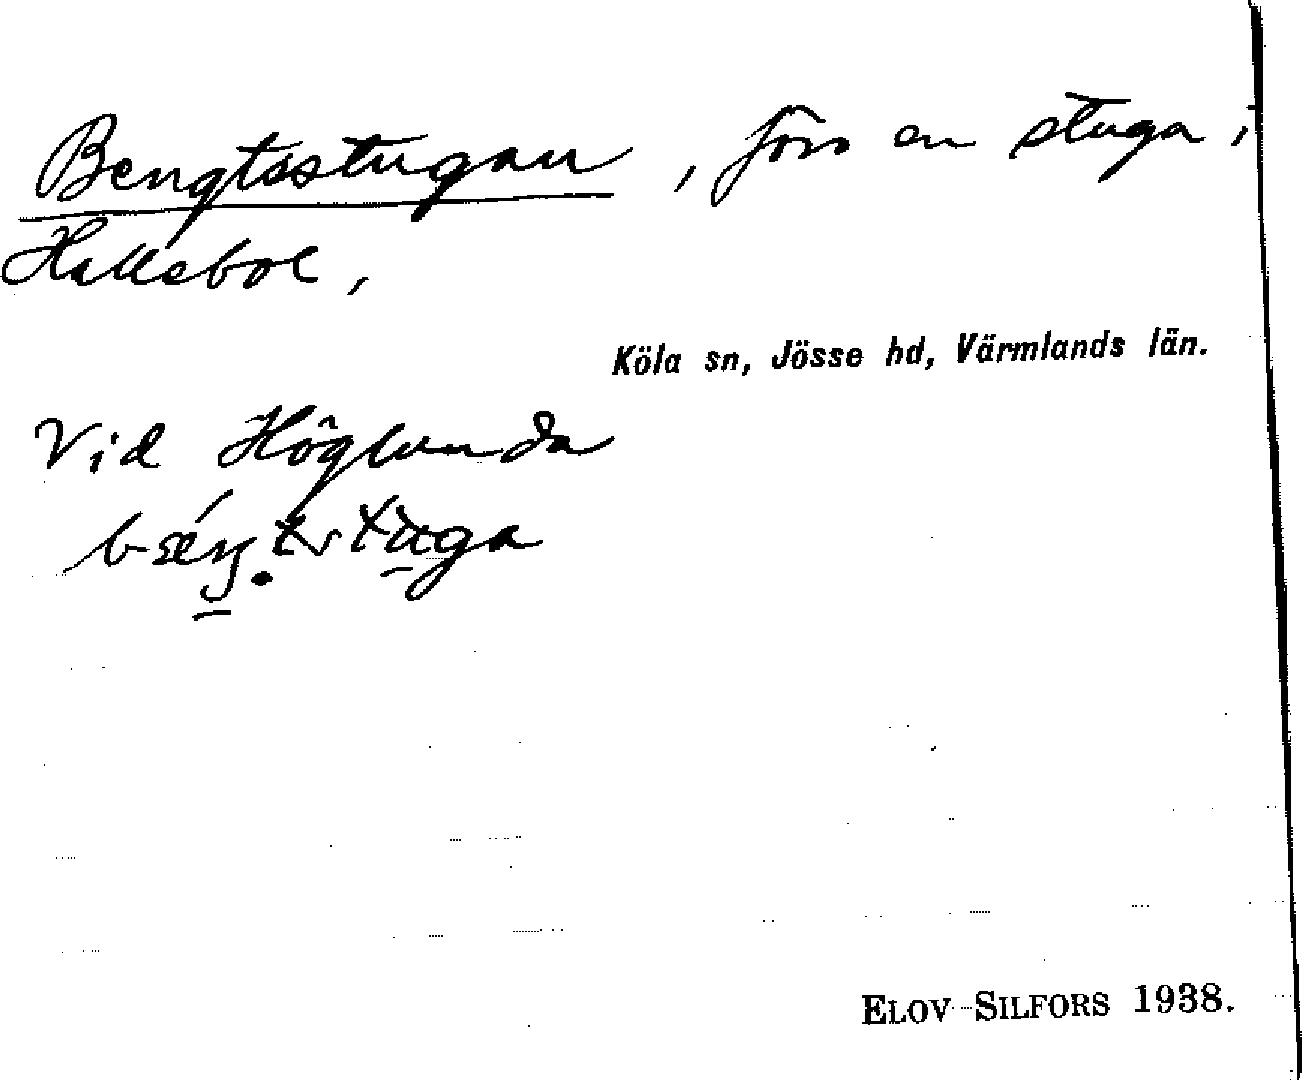 Bengtsstugan, förr en stuga,
Hallsbol,
Köla sn, Jösse hd, Värmlands län.
Vid Höglunda
ELOV SILFORS 1938.